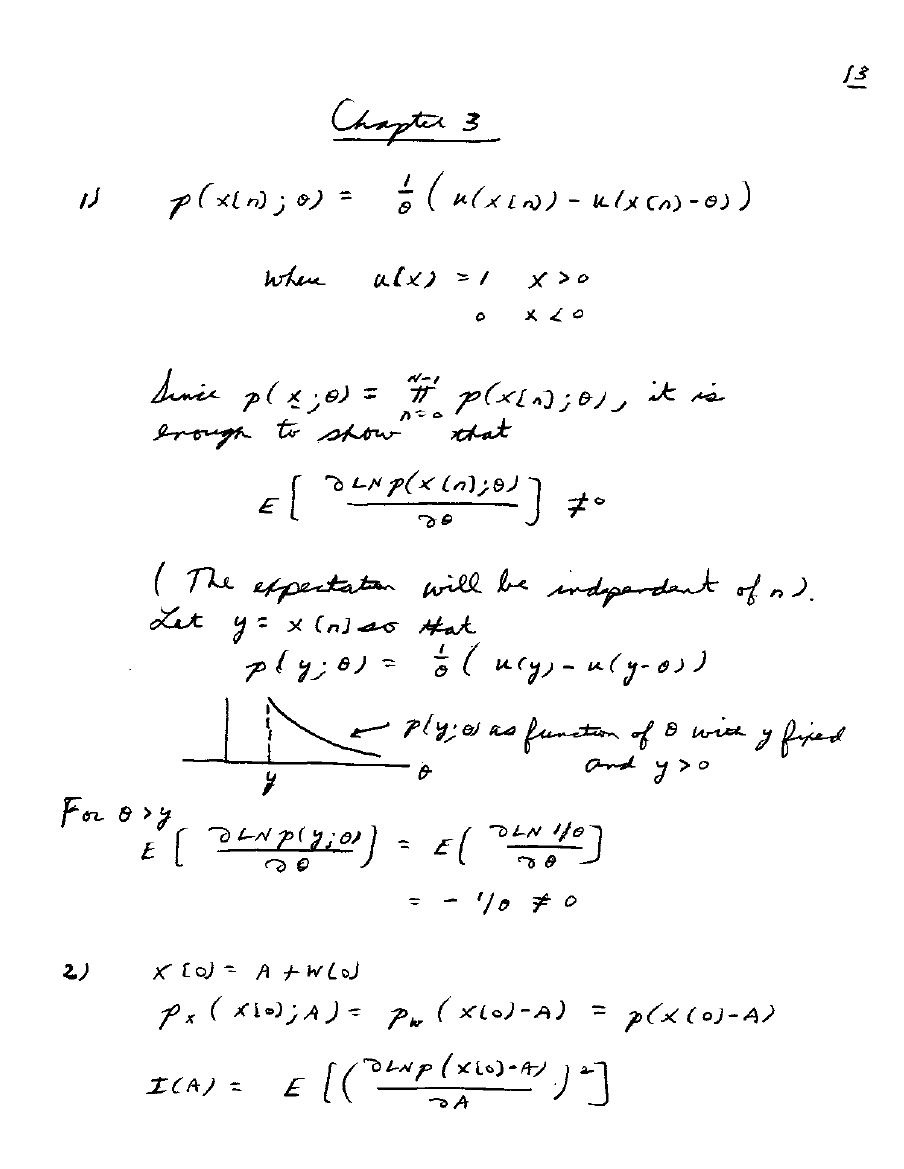 13
Chapter 3
1) p(x[n]; θ) = 1/θ (u(x[n]) - u(x[n]-θ))
where u(x) = 1 x > 0
0 x < 0
Since p(x; θ) = ∏_{n=0}^{N-1} p(x[n]; θ), it is
enough to show that
E[∂ LN p(x[n];θ) / ∂θ] ≠ 0
(The expectation will be independent of n).
Let y = x[n] so that
p(y; θ) = 1/θ (u(y) - u(y-θ))
← p(y;θ) as function of θ with y fixed
and y > 0
θ
y
For θ > y
E[∂ LN p(y;θ) / ∂θ] = E[∂ LN 1/θ / ∂θ]
= - 1/θ ≠ 0
2) x[0] = A + w[0]
p_x(x[0]; A) = p_w(x[0]-A) = p(x[0]-A)
I(A) = E[(∂ LN p(x[0]-A) / ∂A)^2]